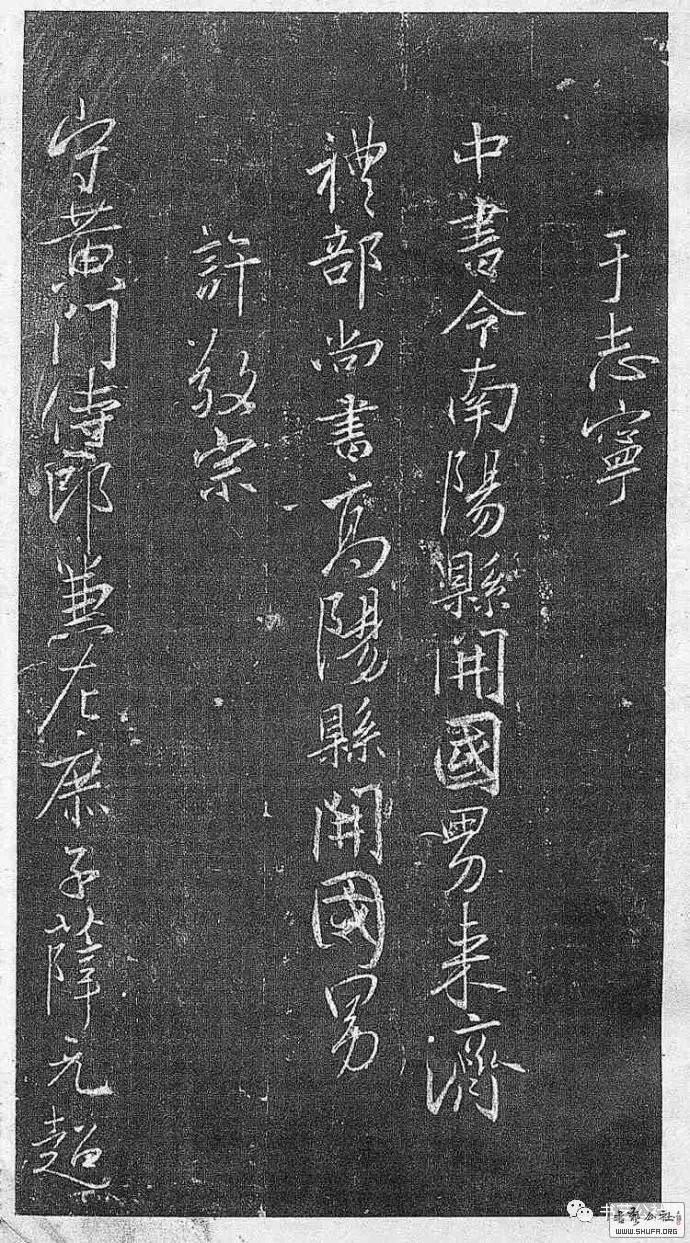 于志寧
中書令南陽縣開國男来濟
禮部尚書高陽縣開國男
許敬宗
守黃門侍郎兼左庶子薛元超
WWW.SHUFA.ORG